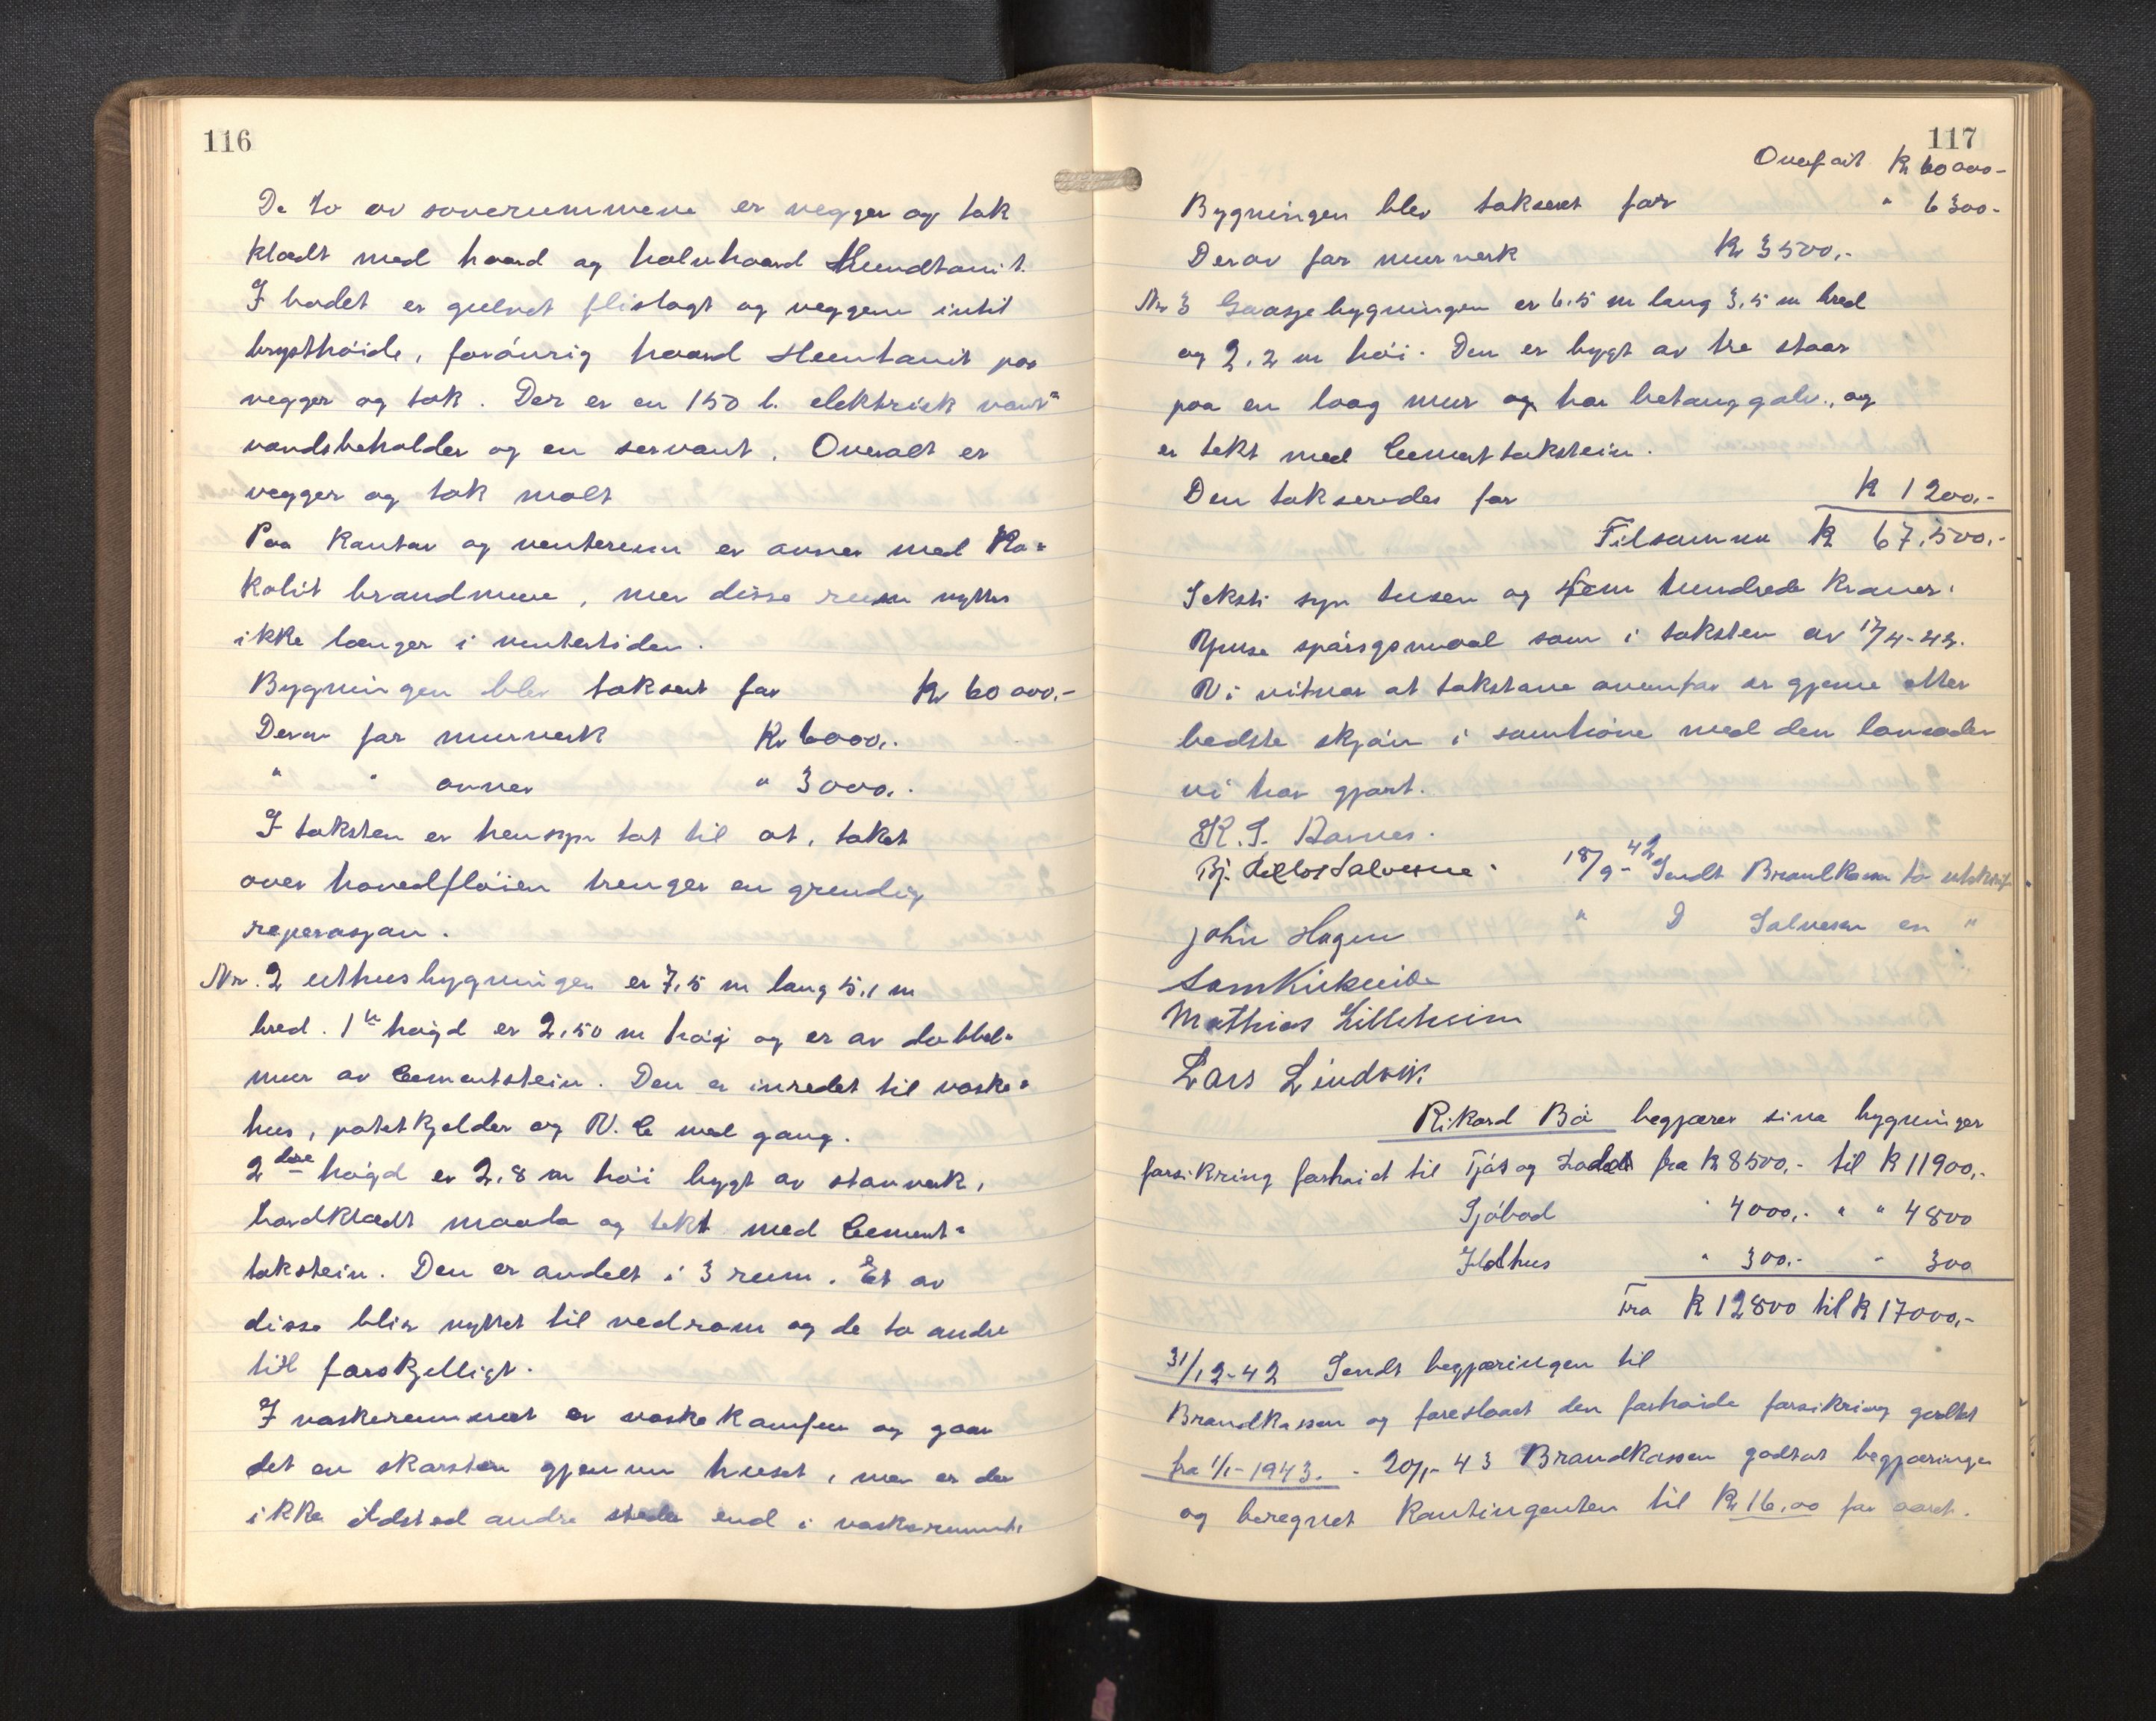 116
De to av soverummene er vegger og tak
klædt med haard og halvhaard Huntonit.
I badet er gulvet flislagt og veggene intil
brysthøide, forøvrig haard Huntonit paa
vegger og tak. Der er en 150 l. elektrisk varm-
vandsbeholder og en servant. Overalt er
vegger og tak malt
Paa Kontor og venterum er ovner med Ko-
kolit brandmure, men disse rum nyttes
ikke længer i vintertiden.
Bygningen blev taksert for Kr 60 000.-
Derav for murverk Kr 6000.-
" " ovner " 3000.-
I taksten er hensyn tat til at, taket
over hovedfløien trenger en grundig
reperasjon.
Nr. 2 uthusbygningen er 7,5 m lang 5,1 m
bred. 1ste høgd er 2,50 m høg og er av dobbel-
mur av Cementstein. Den er inredet til vaske-
hus, potetkjelder og W.C med gang.
2dre høgd er 2,8 m høi bygt av stavverk,
bordklædt maada og tekt med Cement-
takstein. Den er andelt i 3 rum. Et av
disse blir nyttet til vedrom og de to andre
til forskjelligt.
I vaskerummet er vaskekomfur og gaar
det en skorsten gjennem huset, men er der
ikke ildsted andre steder end i vaskerummet.
117
Overført Kr 60 000-
Bygningen blev taksert for " 6300-
Derav for murverk Kr 3500,-
Nr 3 Garasjebygningen er 6,5 m lang 3,5 m bred
og 2,2 m høi. Den er bygt av tre staar
paa en laag mur og har betonggolv, og
er tekt med Cementtakstein.
Den takseredes for K 1200,-
Tilsammen K 67.500,-
Seksti syv tusen og fem hundrede Kroner.
Ymse spørgsmaal som i taksten av 17/4-42.
Vi vitner at takstane ovenfor er gjorne etter
bedste skjøn i samhøve med den lovnaden
vi har gjort.
K. S. Aarnes.
Bj. Salvesen. 18/9-42 Sendt Brandkassen to utskrif.
John Hagen " D Salvesen en "
Mathias Lilleheim
Lars Lindvik
Rikard Bø begjærer sine bygninger
forsikring forhøiet til Fjøs og Lade fra K 8500,- til K 11900,-
Sjøbod " 4000,- " " 4800
Ildhus " 300,- " 300
Fra K 12800 til K 17000,-
31/12-42 Sendt begjæringen til
Brandkassen og foreslaaet den forhøide forsikring gjeldet
fra 1/1-1943. - 20/1-43 Brandkassen godtat begjæringen
og beregnet Kontingenten til Kr 16,00 for aaret.